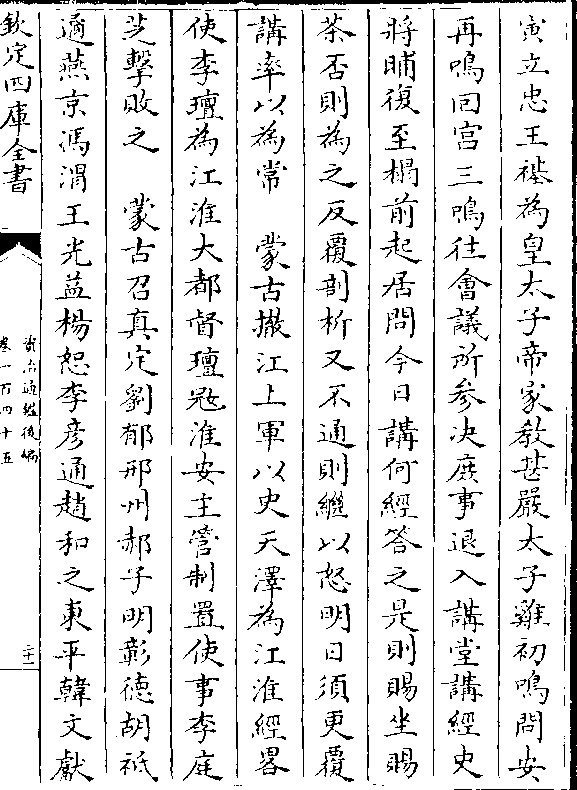 寅立忠王禥為皇太子帝家教甚嚴太子雞初鳴問安
再鳴回宫三鳴往會議所參决庶事退入講堂講經史
將晡復至榻前起居問今日講何經答之是則賜坐賜
茶否則為之反覆剖析又不通則繼以怒明日須更覆
講率以為常　蒙古撤江上軍以史天澤為江淮經畧
使李璮為江淮大都督璮冦淮安主管制置使事李庭
芝擊敗之　蒙古召真定劉郁邢州郝子明彰德胡祗
遹燕京馮渭王光益楊恕李彦通趙和之東平韓文獻
欽定四庫全書
資治通鑑後編
卷一百四十五
二十一